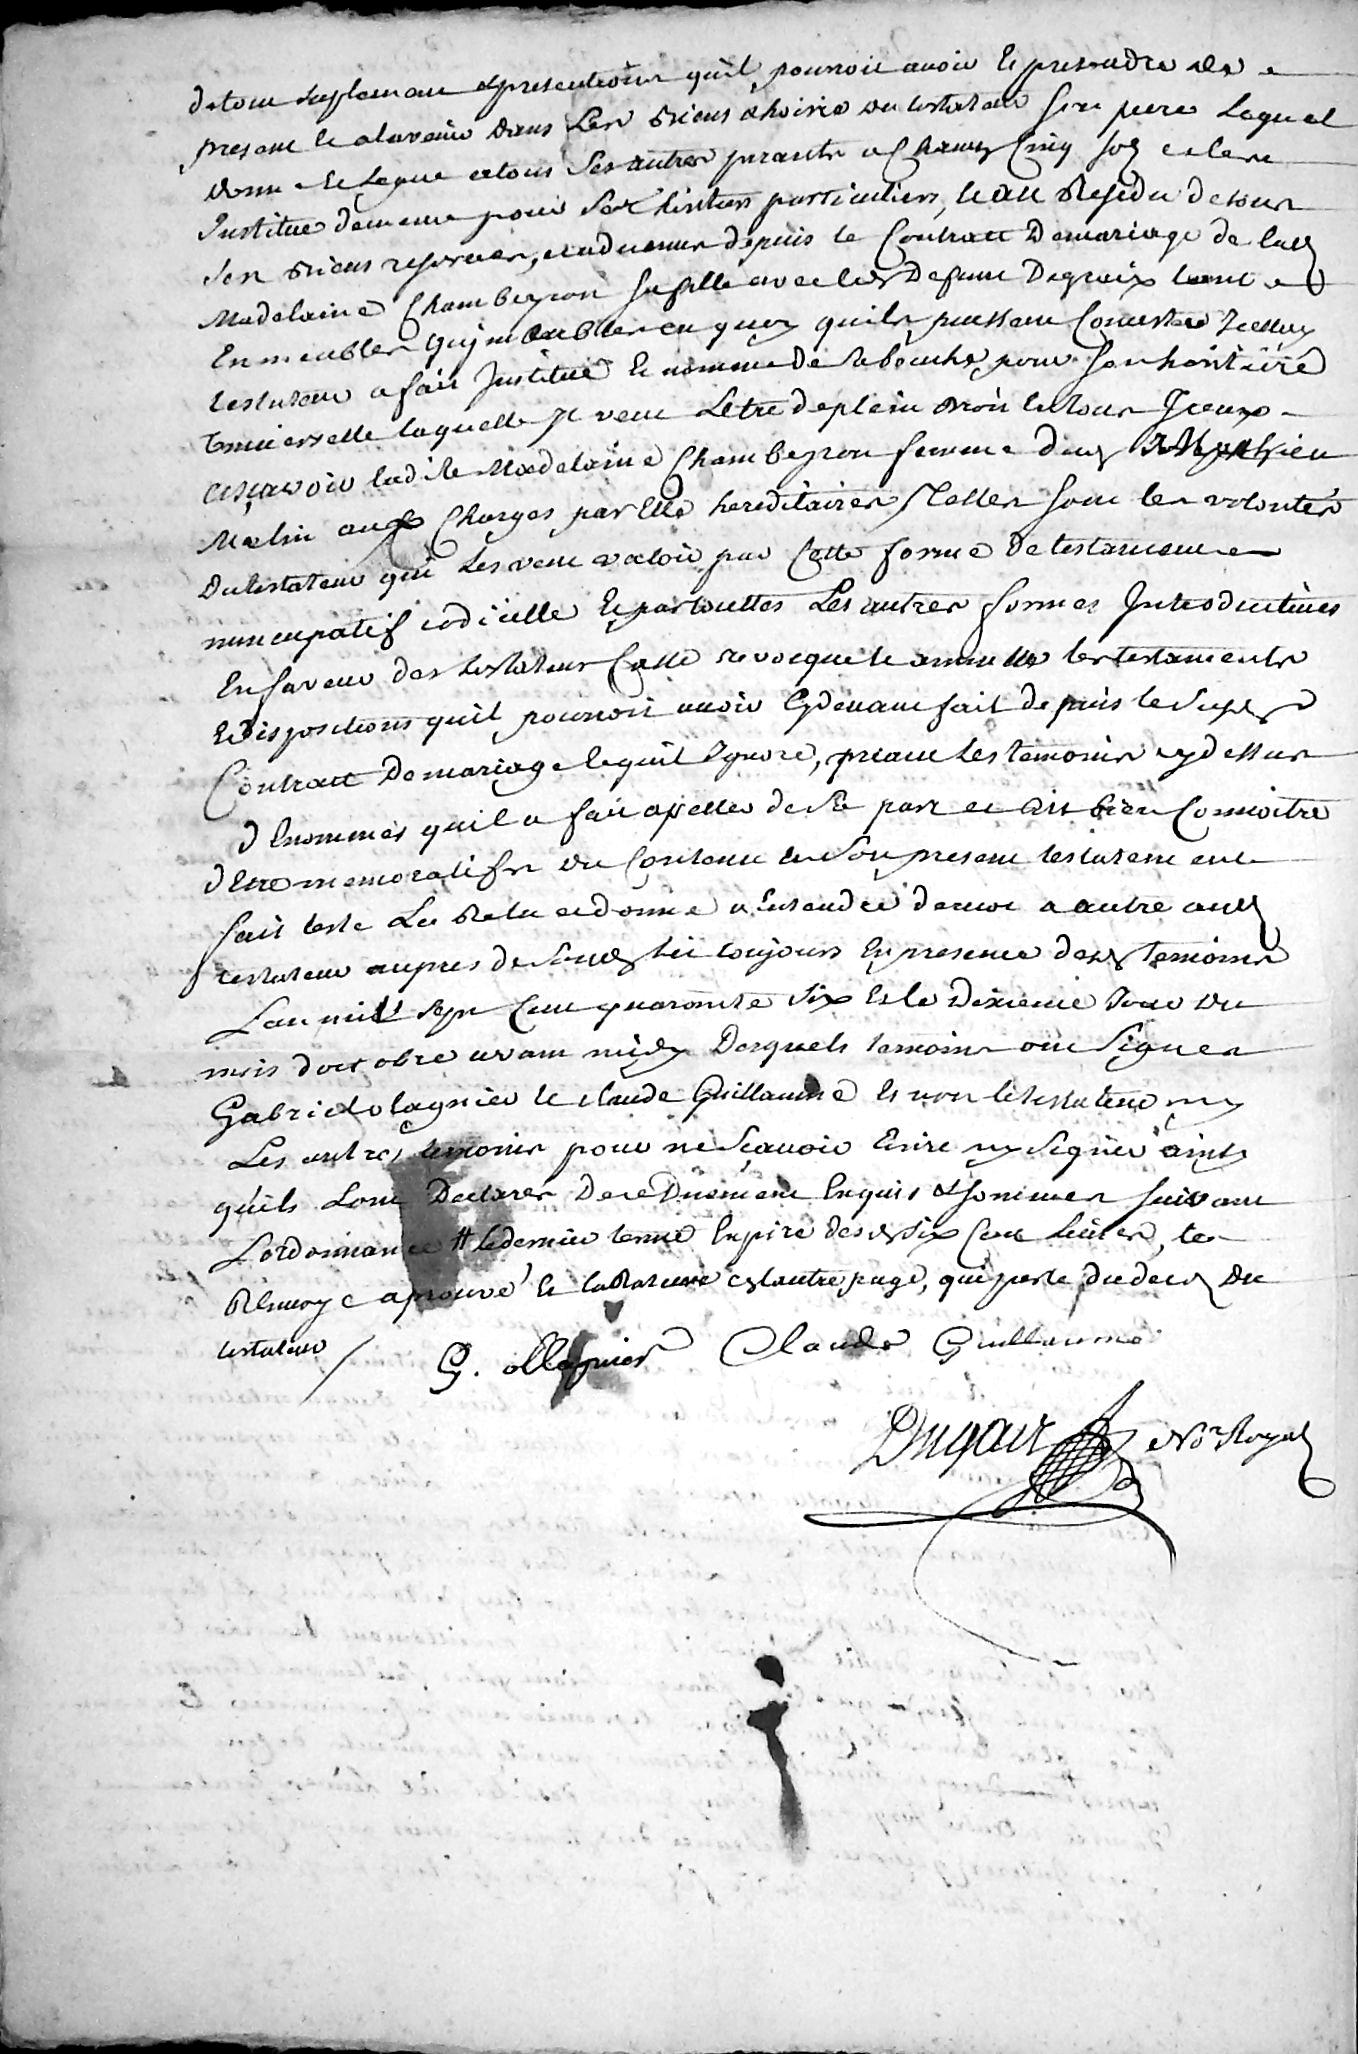 de tout suplement & pretentions quil pouroit avoir et pretendre de
present et alavenir dans Les biens & hoirie du testateur son pere Lequel
donne et Legue atous ses autres parants a Chacun Cinq sols et les
Institue de meme pour ses heritiers particuliers, et au Residu de tous
ses biens reservés, et advenus depuis le Contract De mariage de lad
Madelaine Chambeyron sa fille avec led Defunt Degraix tant
En meubles qu'jmeubles en quoy quils puissent Concister Icelluy
testateur a fait Institué et nomme de sa bouche, pour son héritiere
Universelle laquelle Il veut Letre de plein Droit et tous Iceux
asçavoir ladite Madelaine Chambeyron femme dud Mathieu
Malin aux Charges par Elle hereditaires Telles sont les volontés
Du testateur qui Les veut valoir par Cette forme de testament
nuncupatif codicille Et par touttes Les autres formes Introductives
En faveur des testateurs Casse revocque et annulle les testaments
Et Dispositions quil pourroit avoir Cydevant fait depuis le Susd
Contract De mariage lequil Ignore, priant Les temoins cy dessus
d Enommés quil a fait apeller de sa part et dit bien Connoitre
d Etre memoratifs du Contenu en Son present testatement
fait leste Lu Relu et donne a Entendre de mot a autre aud
testateur aupres de Sond lit toujours En presence desd temoins
Lan mil sept Cent quarante Six Et le Dixieme Jour du
mois doctobre avant midy Desquels temoins ont Signés
Gabriel olagnier et claude Guillaume Et non le testateur ny
Les autres temoins pour ne Sçavoir Ecrire ny Signer ainsy
quils Lont Declarés De ce Duement Enquis & sommés suivant
Lordonnance # Le dernier terme Expire desd Six Cent Livres, le
Renvoy aprouvé Et la Rature es lautre page, qui parle du deces du
testateur /
G. ollagnier Claude Guillaume
Dugait No.re Royal